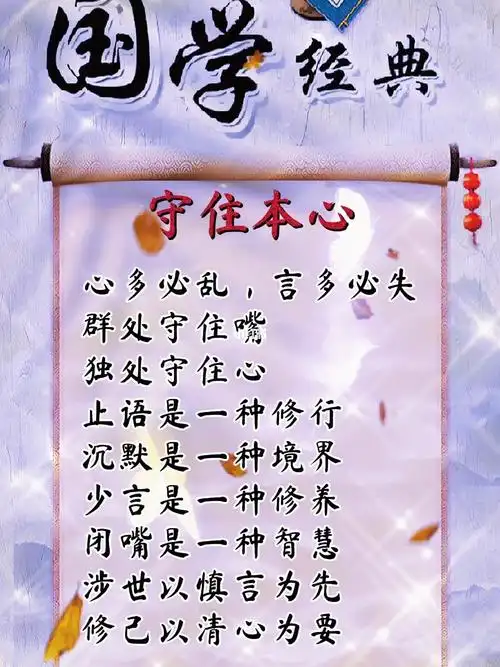 国学经典
守住本心
心多必乱，言多必失
群处守住嘴
独处守住心
止语是一种修行
沉默是一种境界
少言是一种修养
闭嘴是一种智慧
涉世以慎言为先
修己以清心为要